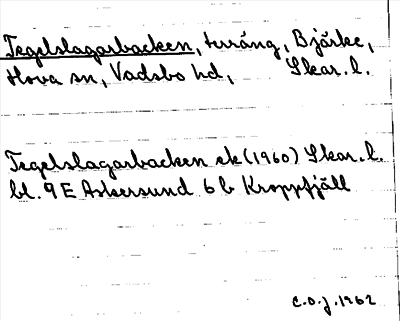 Tegelslagarbacken, terräng, Bjärke,
Hova sn, Vadsbo hd, Skar. l.
Tegelslagarbacken ek (1960) Skar. l.
bl. 9 E Askersund 6 b Kroppfjäll
C.O.J. 1962